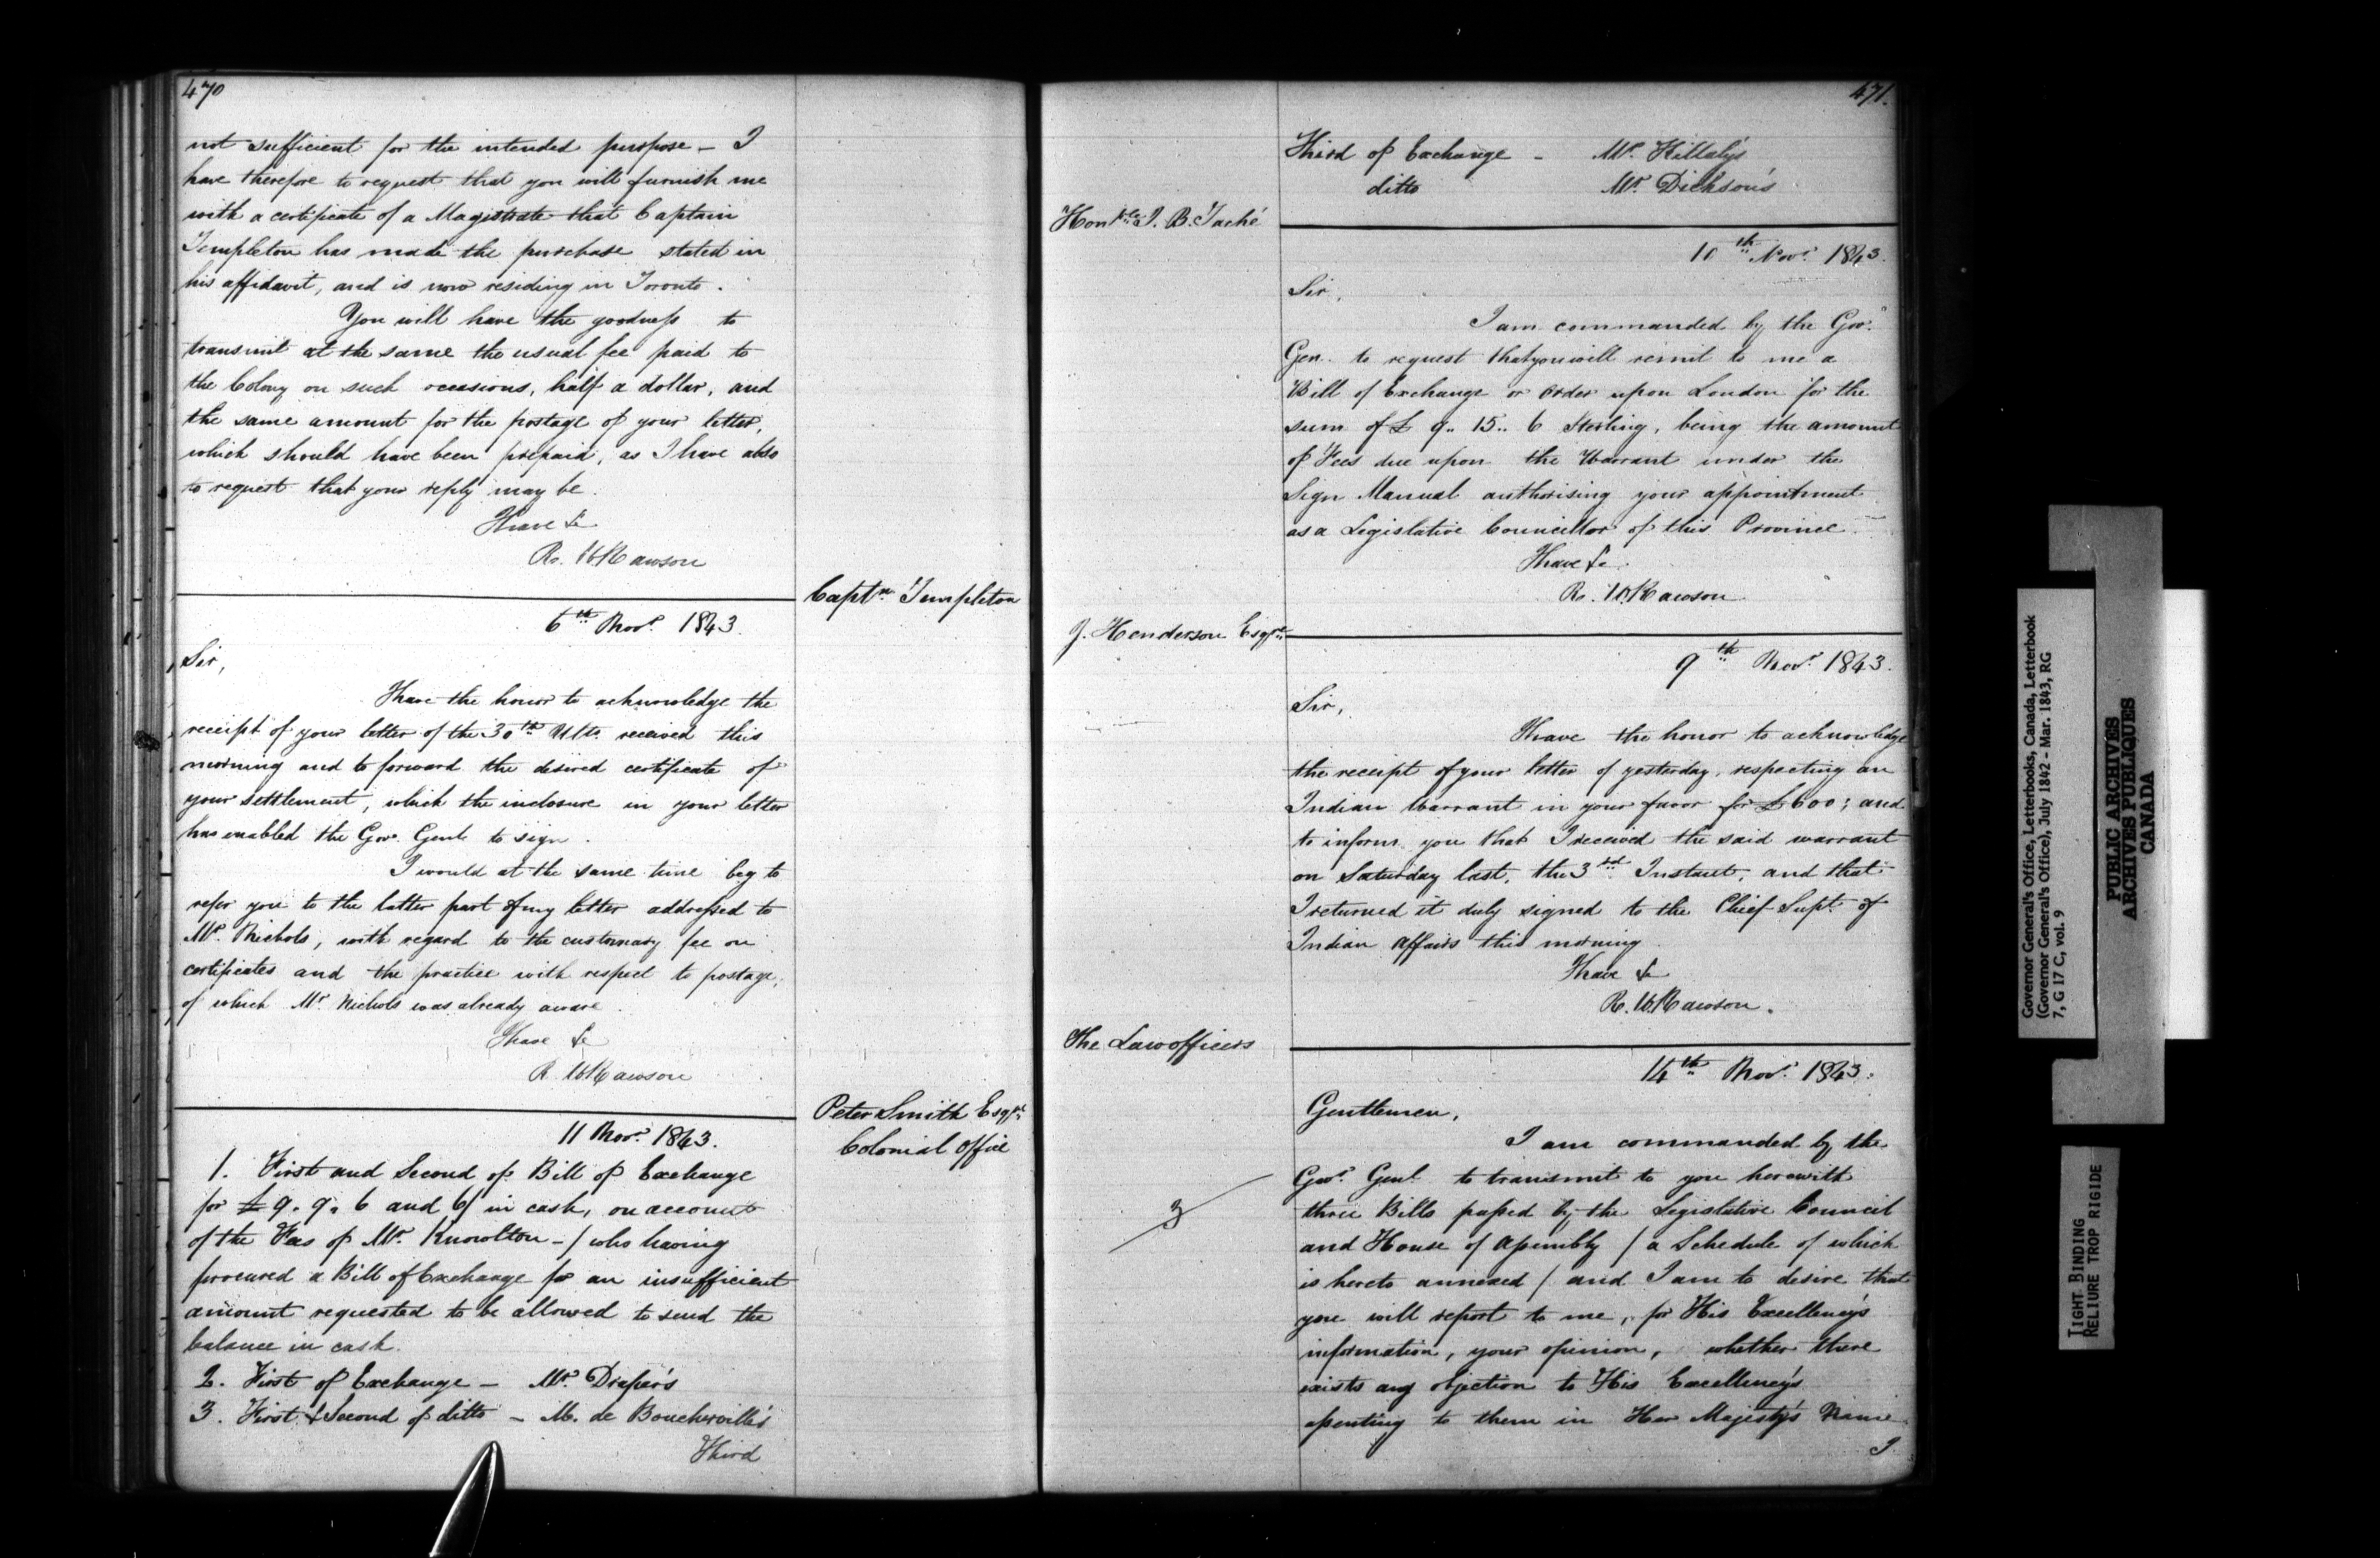 470
not sufficient for the intended purpose – I
have therefore to request that you will furnish me
with a certificate of a Magistrate that Captain
Templeton has made the purchase stated in
his affidavit, and is now residing in Toronto.
You will have the goodness to
transmit at the same the usual fee paid to
the Colony on such occasions, half a dollar, and
the same amount for the postage of your letter,
which should have been prepaid, as I have also
to request that your reply may be.
I have &c
R. W. Rawson
Captn. Templeton
6th Novr. 1843.
Sir,
I have the honor to acknowledge the
receipt of your letter of the 30th Ulto. received this
morning and to forward the desired certificate of
your settlement, which the inclosure in your letter
has enabled the Gov. Genl. to sign.
I would at the same time beg to
refer you to the latter part of my letter addressed to
Mr. Nichols, with regard to the customary fee on
certificates and the practice with respect to postage,
of which Mr. Nichols was already aware.
I have &c
R. W. Rawson
Peter Smith Esqre.
Colonial Office
11 Novr. 1843.
1. First and Second of Bill of Exchange
for £9. 9. 6 and 6/ in cash, on account
of the Fees of Mr. Knowlton – / who having
procured a Bill of Exchange for an insufficient
amount requested to be allowed to send the
balance in cash.
2. First of Exchange – Mr. Draper's
3. First & Second of ditto – M. de Boucherville's
Third
471.
Third of Exchange – Mr. Killaly's
ditto Mr. Dickson's
Honble. J. B. Taché
10th Novr. 1843.
Sir,
I am commanded by the Gov.
Gen. to request that you will remit to me a
Bill of Exchange or order upon London for the
sum of £9.. 15.. 6 Sterling, being the amount
of Fees due upon the Warrant under the
Sign Manual authorising your appointment
as a Legislative Councillor of this Province.
I have &c.
R. W. Rawson
J. Henderson Esqre.
9th Novr. 1843.
Sir,
I have the honor to acknowledge
the receipt of your letter of yesterday, respecting an
Indian Warrant in your favor for £600; and
to inform you that I received the said warrant
on Saturday last, the 3rd Instant, and that
I returned it duly signed to the Chief Supt. of
Indian Affairs this morning
I have &c
R. W. Rawson.
The Law officers
14th Novr. 1843.
Gentlemen,
I am commanded by the
Govr. Genl. to transmit to you herewith
3
three Bills passed by the Legislative Council
and House of Assembly / a Schedule of which
is hereto annexed / and I am to desire that
you will report to me, for His Excellency's
information, your opinion, whether there
exists any objection to His Excellency's
assenting to them in Her Majesty's Name
I
Governor General's Office, Letterbooks, Canada, Letterbook
(Governor General's Office), July 1842 - Mar. 1843, RG
7, G 17 C, vol. 9
PUBLIC ARCHIVES
ARCHIVES PUBLIQUES
CANADA
TIGHT BINDING
RELIURE TROP RIGIDE